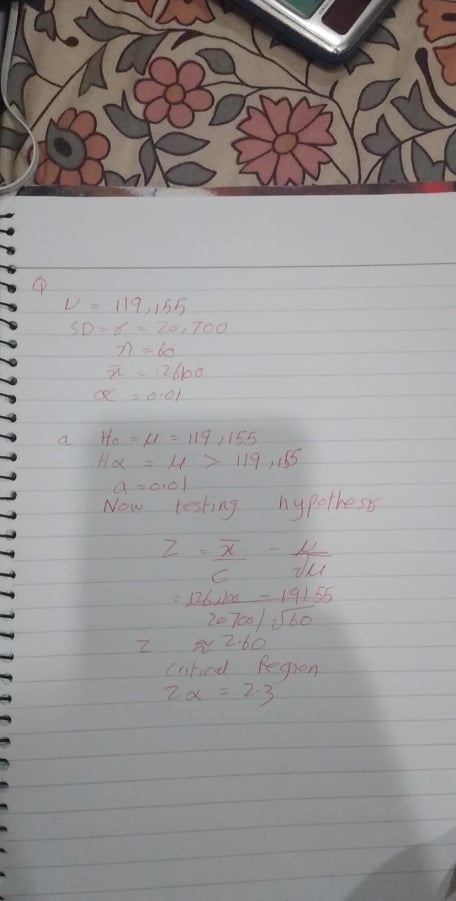 Q
μ = 119,155
SD = σ = 20,700
n = 60
x̄ = 126100
α = 0.01
a H₀ = μ = 119,155
Hα = μ > 119,155
a = 0.01
Now testing hypothesis
Z = x̄ - μ
σ √n
= 126,100 - 19155
20700/√60
Z ≈ 2.60
Critical Region
Zα = 2.3